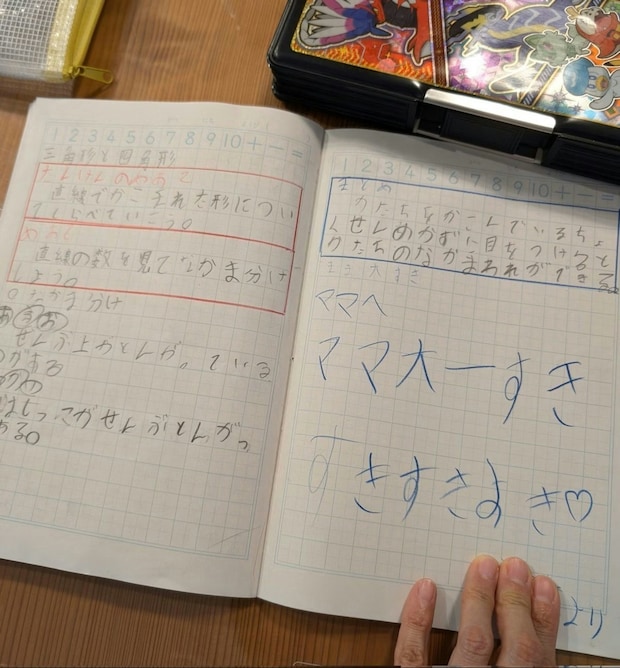 1 2 3 4 5 6 7 8 9 10 + − =
三角形と四角形
たんけんのめあて
直線でかこまれた形につい
てしらべていこう。
めあて
直線の数を見てなかま分け
しよう。
○なかま分け
あ
ぜんぶ上がとんが。ている
のがある
はじっこがぜんぶとんがっ
ある○
1 2 3 4 5 6 7 8 9 10 + − =
まとめ
かたちをかこんでいるちょ
くせんのかずに目をつけると
かたちのなかまわけができる。
ママ大すき
ママへ
ママ大ーすき
すきすきすき♡
より